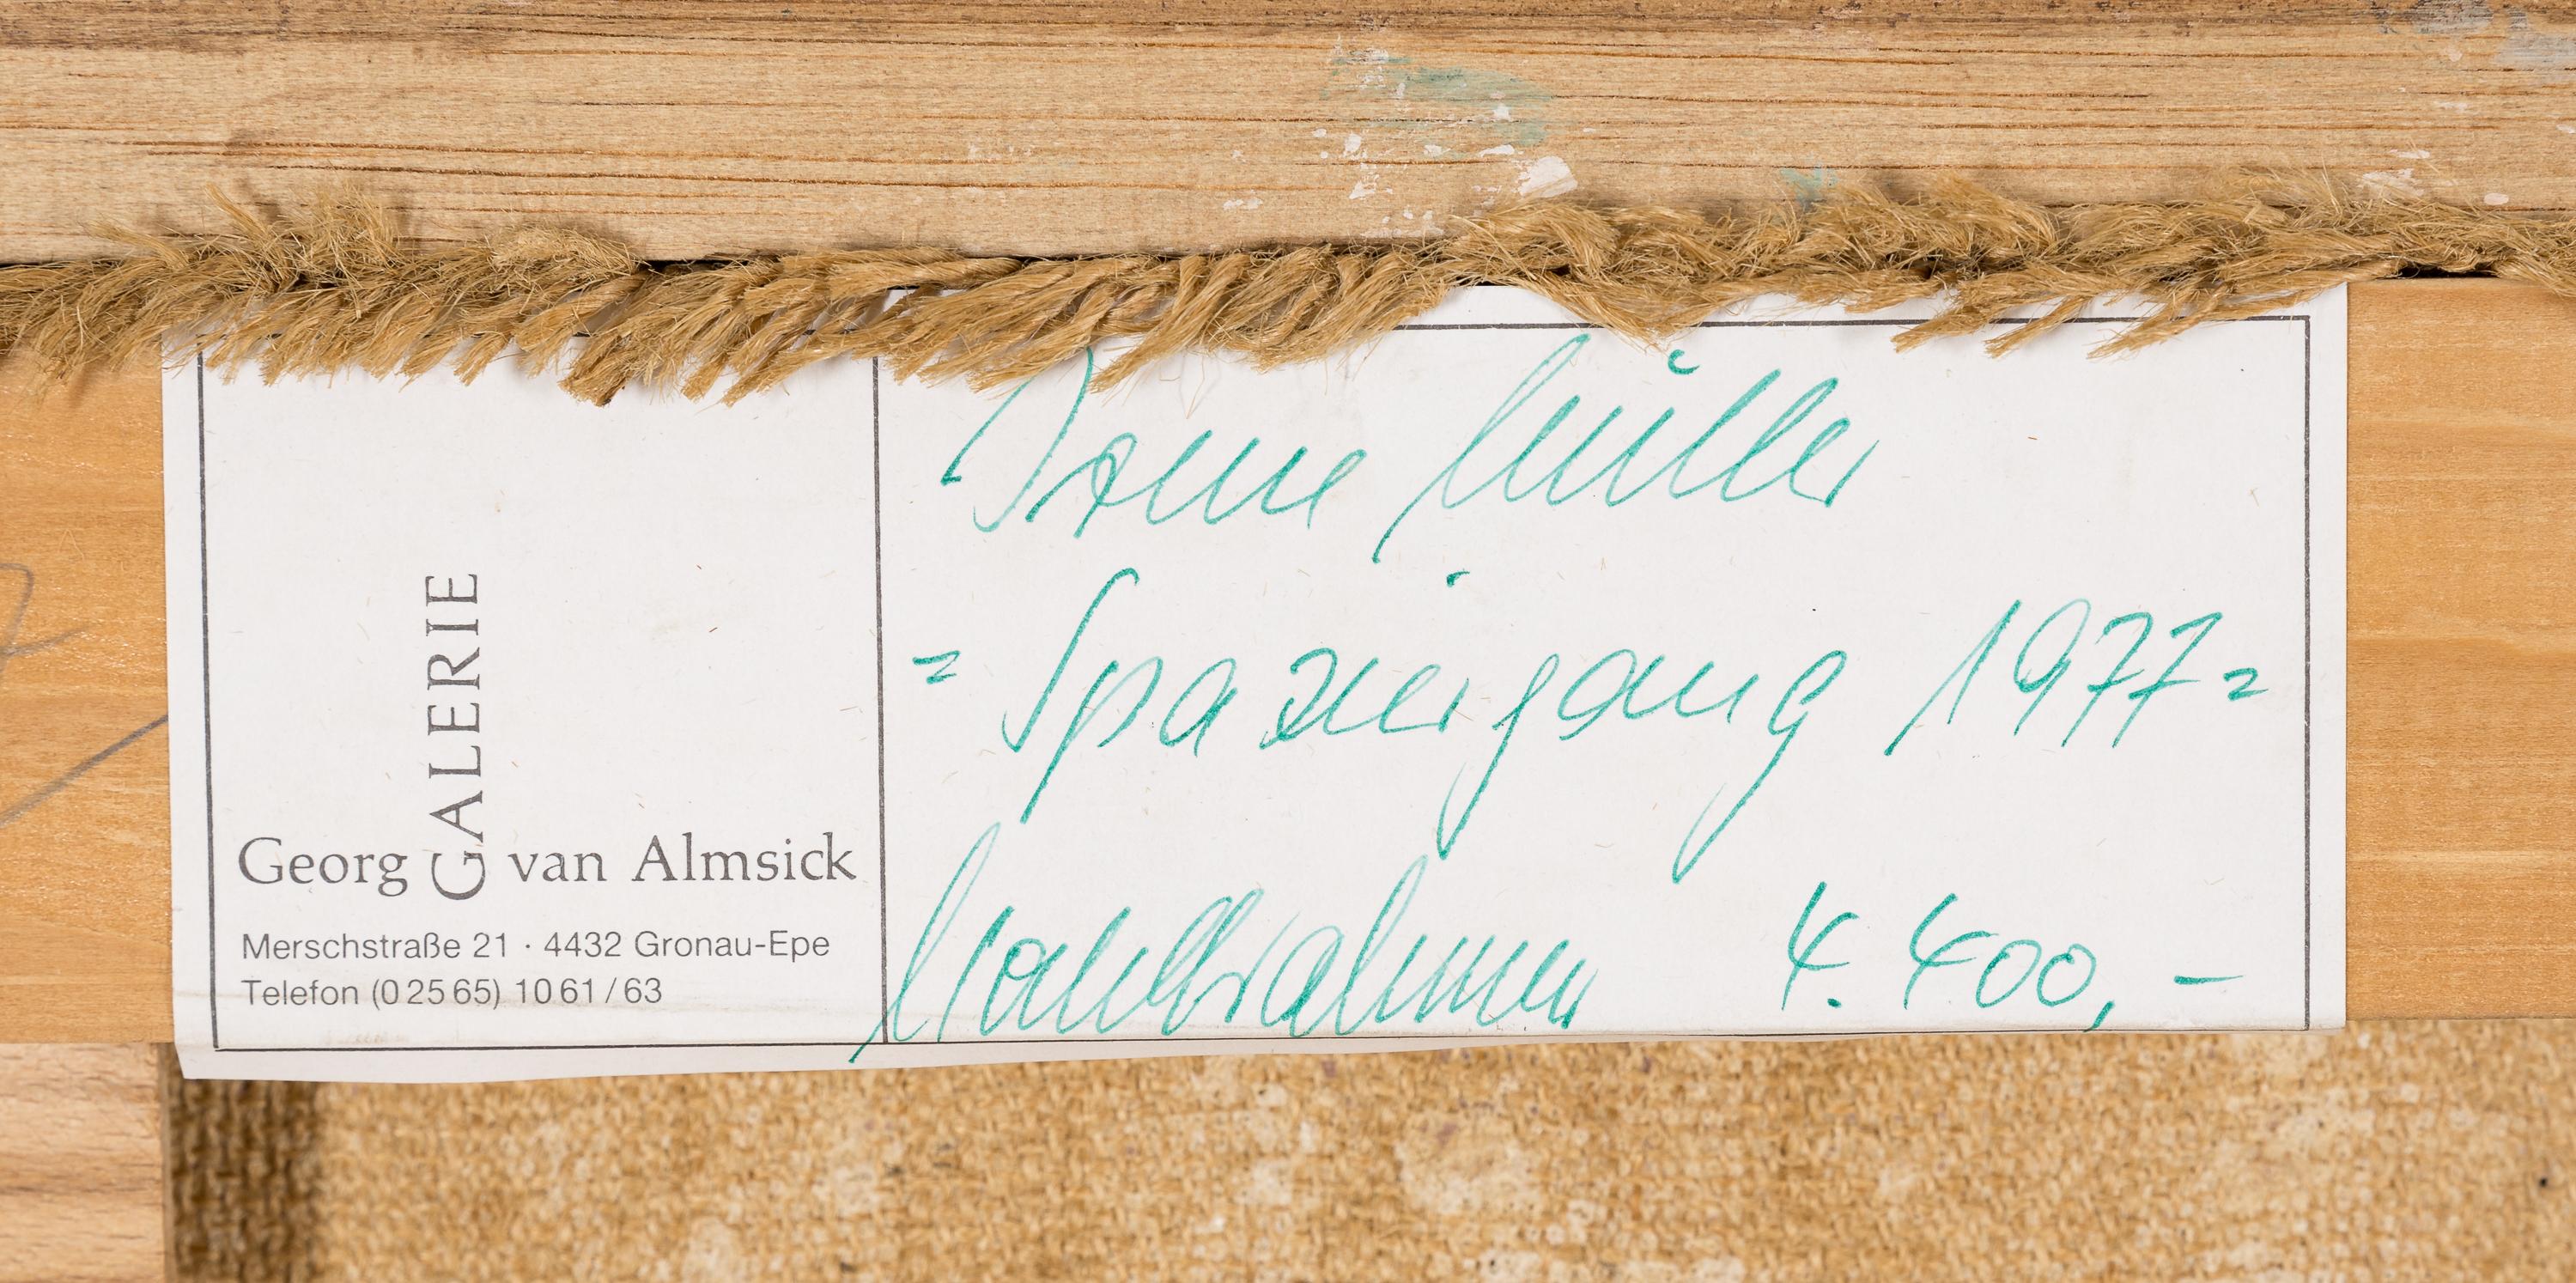 GALERIE
Georg van Almsick
Merschstraße 21 · 4432 Gronau-Epe
Telefon (0 25 65) 10 61 / 63
Müller
= Spaziergang 1977 =
4.400,-